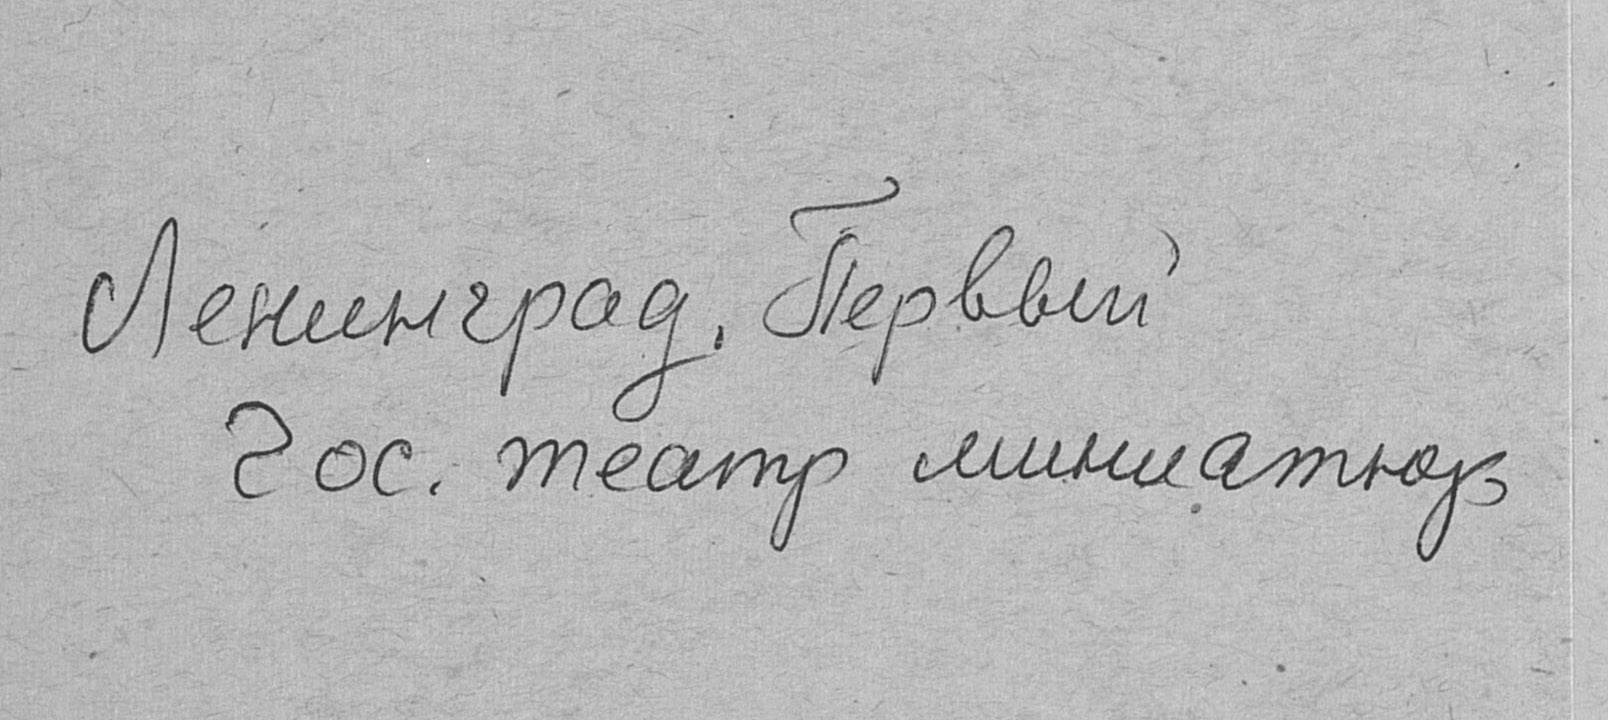 Ленинград. Первый
Гос. театр миниатюр